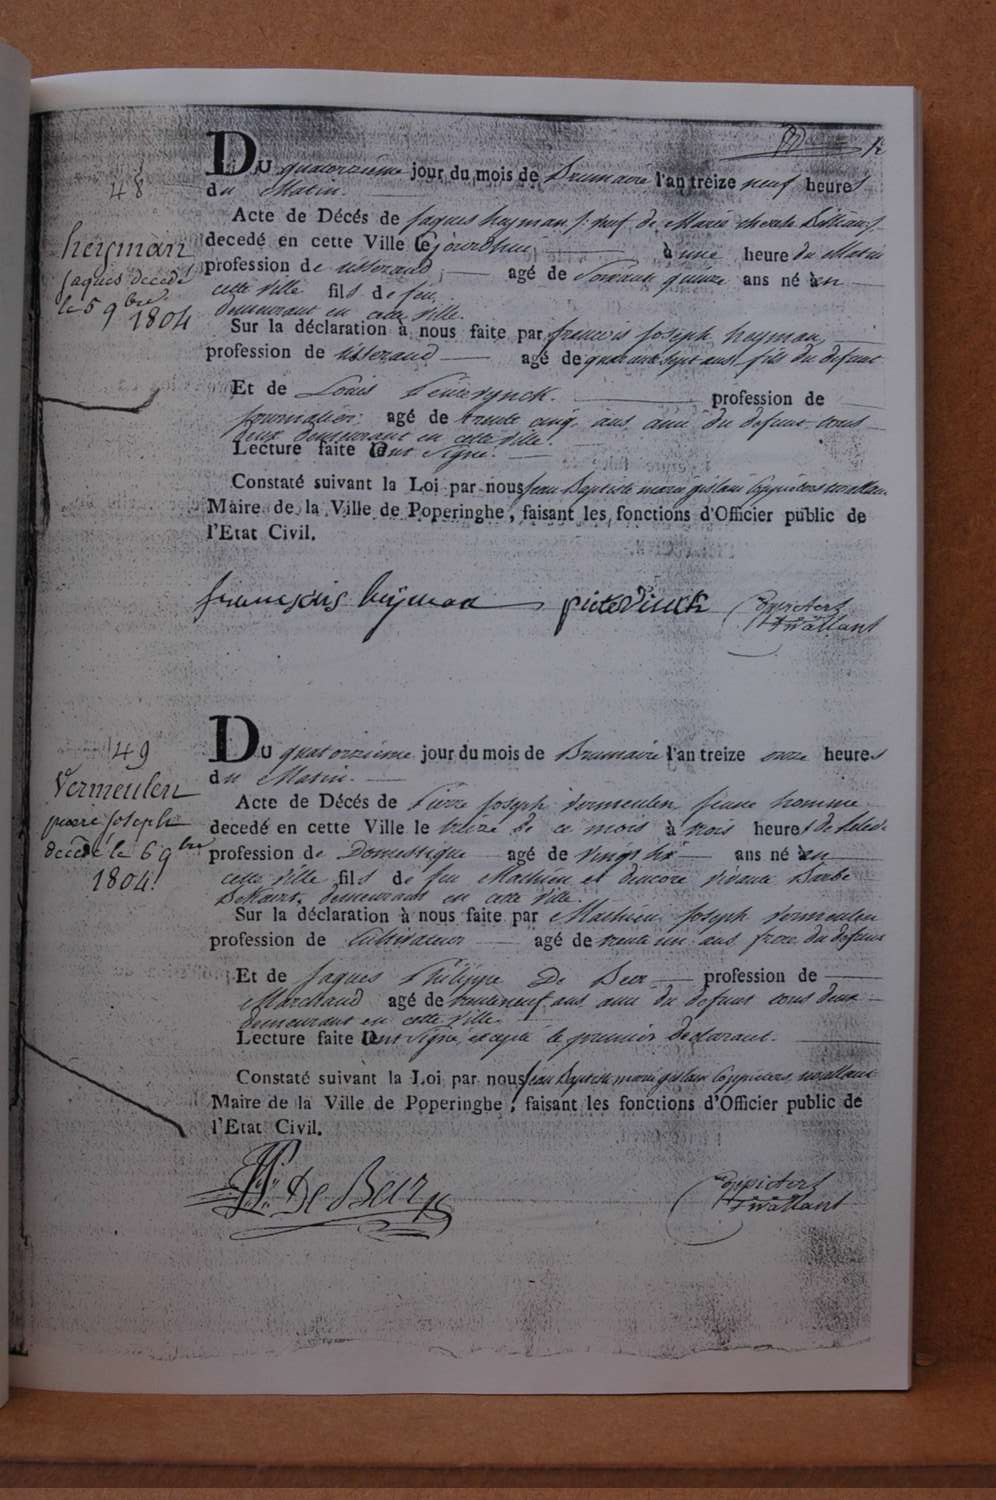 48
heyman
Jaques decede
le 5 9bre
1804
DU quatorzieme jour du mois de Brumaire l'an treize neuf heures
du Matin.
Acte de Décés de Jaques heyman veuf de Marie
decedé en cette Ville le jourdhuy à une heure du Matin
profession de tisserand, agé de Soixante quinze ans né en
cette Ville fils de feu
demeurant en cette ville.
Sur la déclaration à nous faite par francois Joseph heyman,
profession de tisserand agé de quarante sept ans fils du defunt
Et de Louis Pieterynck. profession de
Journalier; agé de trente cinq ans ami du defunt tous
deux demeurant en cette ville.
Lecture faite ont Signé.
Constaté suivant la Loi par nous Jean Baptiste marie gislain Coppieters twallant
Maire de la Ville de Poperinghe, faisant les fonctions d'Officier public de
l'Etat Civil.
fransois heyman pieter Vinck Coppieters
twallant
49
Vermeulen
pierre Joseph
decede le 6 9bre
1804.
DU quatorzieme jour du mois de Brumaire l'an treize onze heures
du Matin.
Acte de Décés de Pierre Joseph Vermeulen Jeune homme
decedé en cette Ville le treize de ce mois à trois heures de
profession de Domestique agé de vingt six ans né en
cette ville fils de feu Mathieu et d'encore vivante Barbe
demeurant en cette Ville.
Sur la déclaration à nous faite par Mathieu Joseph Vermeulen
profession de Cultivateur agé de trente un ans frere du defunt
Et de Jaques Philippe De Beir profession de
Marchand agé de trente neuf ans ami du defunt tous deux
demeurant en cette Ville.
Lecture faite ont Signé, excepté le premier declarant.
Constaté suivant la Loi par nous Jean Baptiste marie gislain Coppieters twallant
Maire de la Ville de Poperinghe, faisant les fonctions d'Officier public de
l'Etat Civil.
De Beir Coppieters
twallant